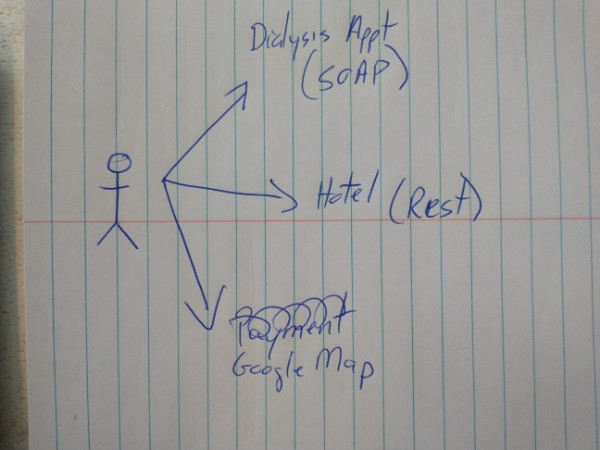 Dialysis Appt
(SOAP)
Hotel (Rest)
Payment
Google Map